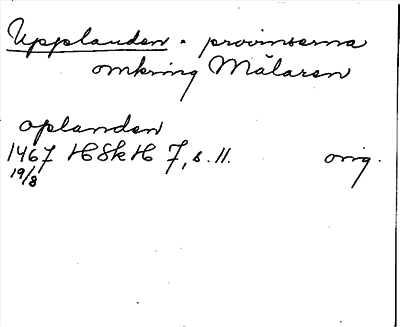 Upplanden - provinserna
omkring Mälaren
oplanden
1467 HSkH 7, s. 11. orig.
19/8